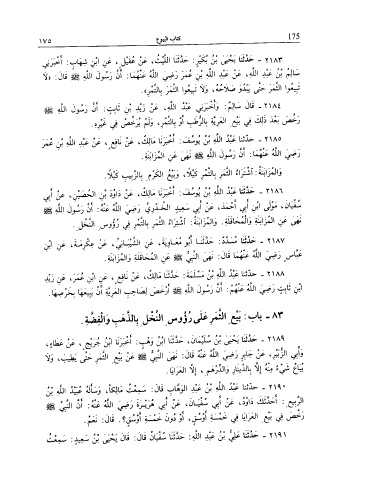 ١٧٥ كتاب البيوع 175
٢١٨٣ - حَدَّثَنَا يَحْيَى بْنُ بُكَيْرٍ: حَدَّثَنَا اللَّيْثُ، عَنْ عُقَيْلٍ، عَنِ ابْنِ شِهَابٍ: أَخْبَرَنِي
سَالِمُ بْنُ عَبْدِ اللَّهِ، عَنْ عَبْدِ اللَّهِ بْنِ عُمَرَ رَضِيَ اللَّهُ عَنْهُمَا: أَنَّ رَسُولَ اللَّهِ ﷺ قَالَ: «لَا
تَبِيعُوا الثَّمَرَ حَتَّى يَبْدُوَ صَلَاحُهُ، وَلَا تَبِيعُوا الثَّمَرَ بِالتَّمْرِ».
٢١٨٤ - قَالَ سَالِمٌ: وَأَخْبَرَنِي عَبْدُ اللَّهِ، عَنْ زَيْدِ بْنِ ثَابِتٍ: أَنَّ رَسُولَ اللَّهِ ﷺ
رَخَّصَ بَعْدَ ذَلِكَ فِي بَيْعِ الْعَرِيَّةِ بِالرُّطَبِ أَوْ بِالتَّمْرِ، وَلَمْ يُرَخِّصْ فِي غَيْرِهِ.
٢١٨٥ - حَدَّثَنَا عَبْدُ اللَّهِ بْنُ يُوسُفَ: أَخْبَرَنَا مَالِكٌ، عَنْ نَافِعٍ، عَنْ عَبْدِ اللَّهِ بْنِ عُمَرَ
رَضِيَ اللَّهُ عَنْهُمَا: أَنَّ رَسُولَ اللَّهِ ﷺ نَهَى عَنِ الْمُزَابَنَةِ.
وَالْمُزَابَنَةُ: اشْتِرَاءُ الثَّمَرِ بِالتَّمْرِ كَيْلًا، وَبَيْعُ الْكَرْمِ بِالزَّبِيبِ كَيْلًا.
٢١٨٦ - حَدَّثَنَا عَبْدُ اللَّهِ بْنُ يُوسُفَ: أَخْبَرَنَا مَالِكٌ، عَنْ دَاوُدَ بْنِ الْحُصَيْنِ، عَنْ أَبِي
سُفْيَانَ، مَوْلَى ابْنِ أَبِي أَحْمَدَ، عَنْ أَبِي سَعِيدٍ الْخُدْرِيِّ رَضِيَ اللَّهُ عَنْهُ: أَنَّ رَسُولَ اللَّهِ ﷺ
نَهَى عَنِ الْمُزَابَنَةِ وَالْمُحَاقَلَةِ. وَالْمُزَابَنَةُ: اشْتِرَاءُ الثَّمَرِ بِالتَّمْرِ فِي رُؤُوسِ النَّخْلِ.
٢١٨٧ - حَدَّثَنَا مُسَدَّدٌ: حَدَّثَنَا أَبُو مُعَاوِيَةَ، عَنِ الشَّيْبَانِيِّ، عَنْ عِكْرِمَةَ، عَنِ ابْنِ
عَبَّاسٍ رَضِيَ اللَّهُ عَنْهُمَا قَالَ: نَهَى النَّبِيُّ ﷺ عَنِ الْمُحَاقَلَةِ وَالْمُزَابَنَةِ.
٢١٨٨ - حَدَّثَنَا عَبْدُ اللَّهِ بْنُ مَسْلَمَةَ: حَدَّثَنَا مَالِكٌ، عَنْ نَافِعٍ، عَنِ ابْنِ عُمَرَ، عَنْ زَيْدِ
ابْنِ ثَابِتٍ رَضِيَ اللَّهُ عَنْهُمْ: أَنَّ رَسُولَ اللَّهِ ﷺ أَرْخَصَ لِصَاحِبِ الْعَرِيَّةِ أَنْ يَبِيعَهَا بِخَرْصِهَا.
٨٣ - باب: بَيْعِ الثَّمَرِ عَلَى رُؤُوسِ النَّخْلِ بِالذَّهَبِ وَالْفِضَّةِ.
٢١٨٩ - حَدَّثَنَا يَحْيَى بْنُ سُلَيْمَانَ: حَدَّثَنَا ابْنُ وَهْبٍ: أَخْبَرَنَا ابْنُ جُرَيْجٍ، عَنْ عَطَاءٍ،
وَأَبِي الزُّبَيْرِ، عَنْ جَابِرٍ رَضِيَ اللَّهُ عَنْهُ قَالَ: نَهَى النَّبِيُّ ﷺ عَنْ بَيْعِ الثَّمَرِ حَتَّى يَطِيبَ، وَلَا
يُبَاعُ شَيْءٌ مِنْهُ إِلَّا بِالدِّينَارِ وَالدِّرْهَمِ، إِلَّا الْعَرَايَا.
٢١٩٠ - حَدَّثَنَا عَبْدُ اللَّهِ بْنُ عَبْدِ الْوَهَّابِ قَالَ: سَمِعْتُ مَالِكًا، وَسَأَلَهُ عُبَيْدُ اللَّهِ بْنُ
الرَّبِيعِ: أَحَدَّثَكَ دَاوُدُ، عَنْ أَبِي سُفْيَانَ، عَنْ أَبِي هُرَيْرَةَ رَضِيَ اللَّهُ عَنْهُ: أَنَّ النَّبِيَّ ﷺ
رَخَّصَ فِي بَيْعِ الْعَرَايَا فِي خَمْسَةِ أَوْسُقٍ، أَوْ دُونَ خَمْسَةِ أَوْسُقٍ؟. قَالَ: نَعَمْ.
٢١٩١ - حَدَّثَنَا عَلِيُّ بْنُ عَبْدِ اللَّهِ: حَدَّثَنَا سُفْيَانُ قَالَ: قَالَ يَحْيَى بْنُ سَعِيدٍ: سَمِعْتُ